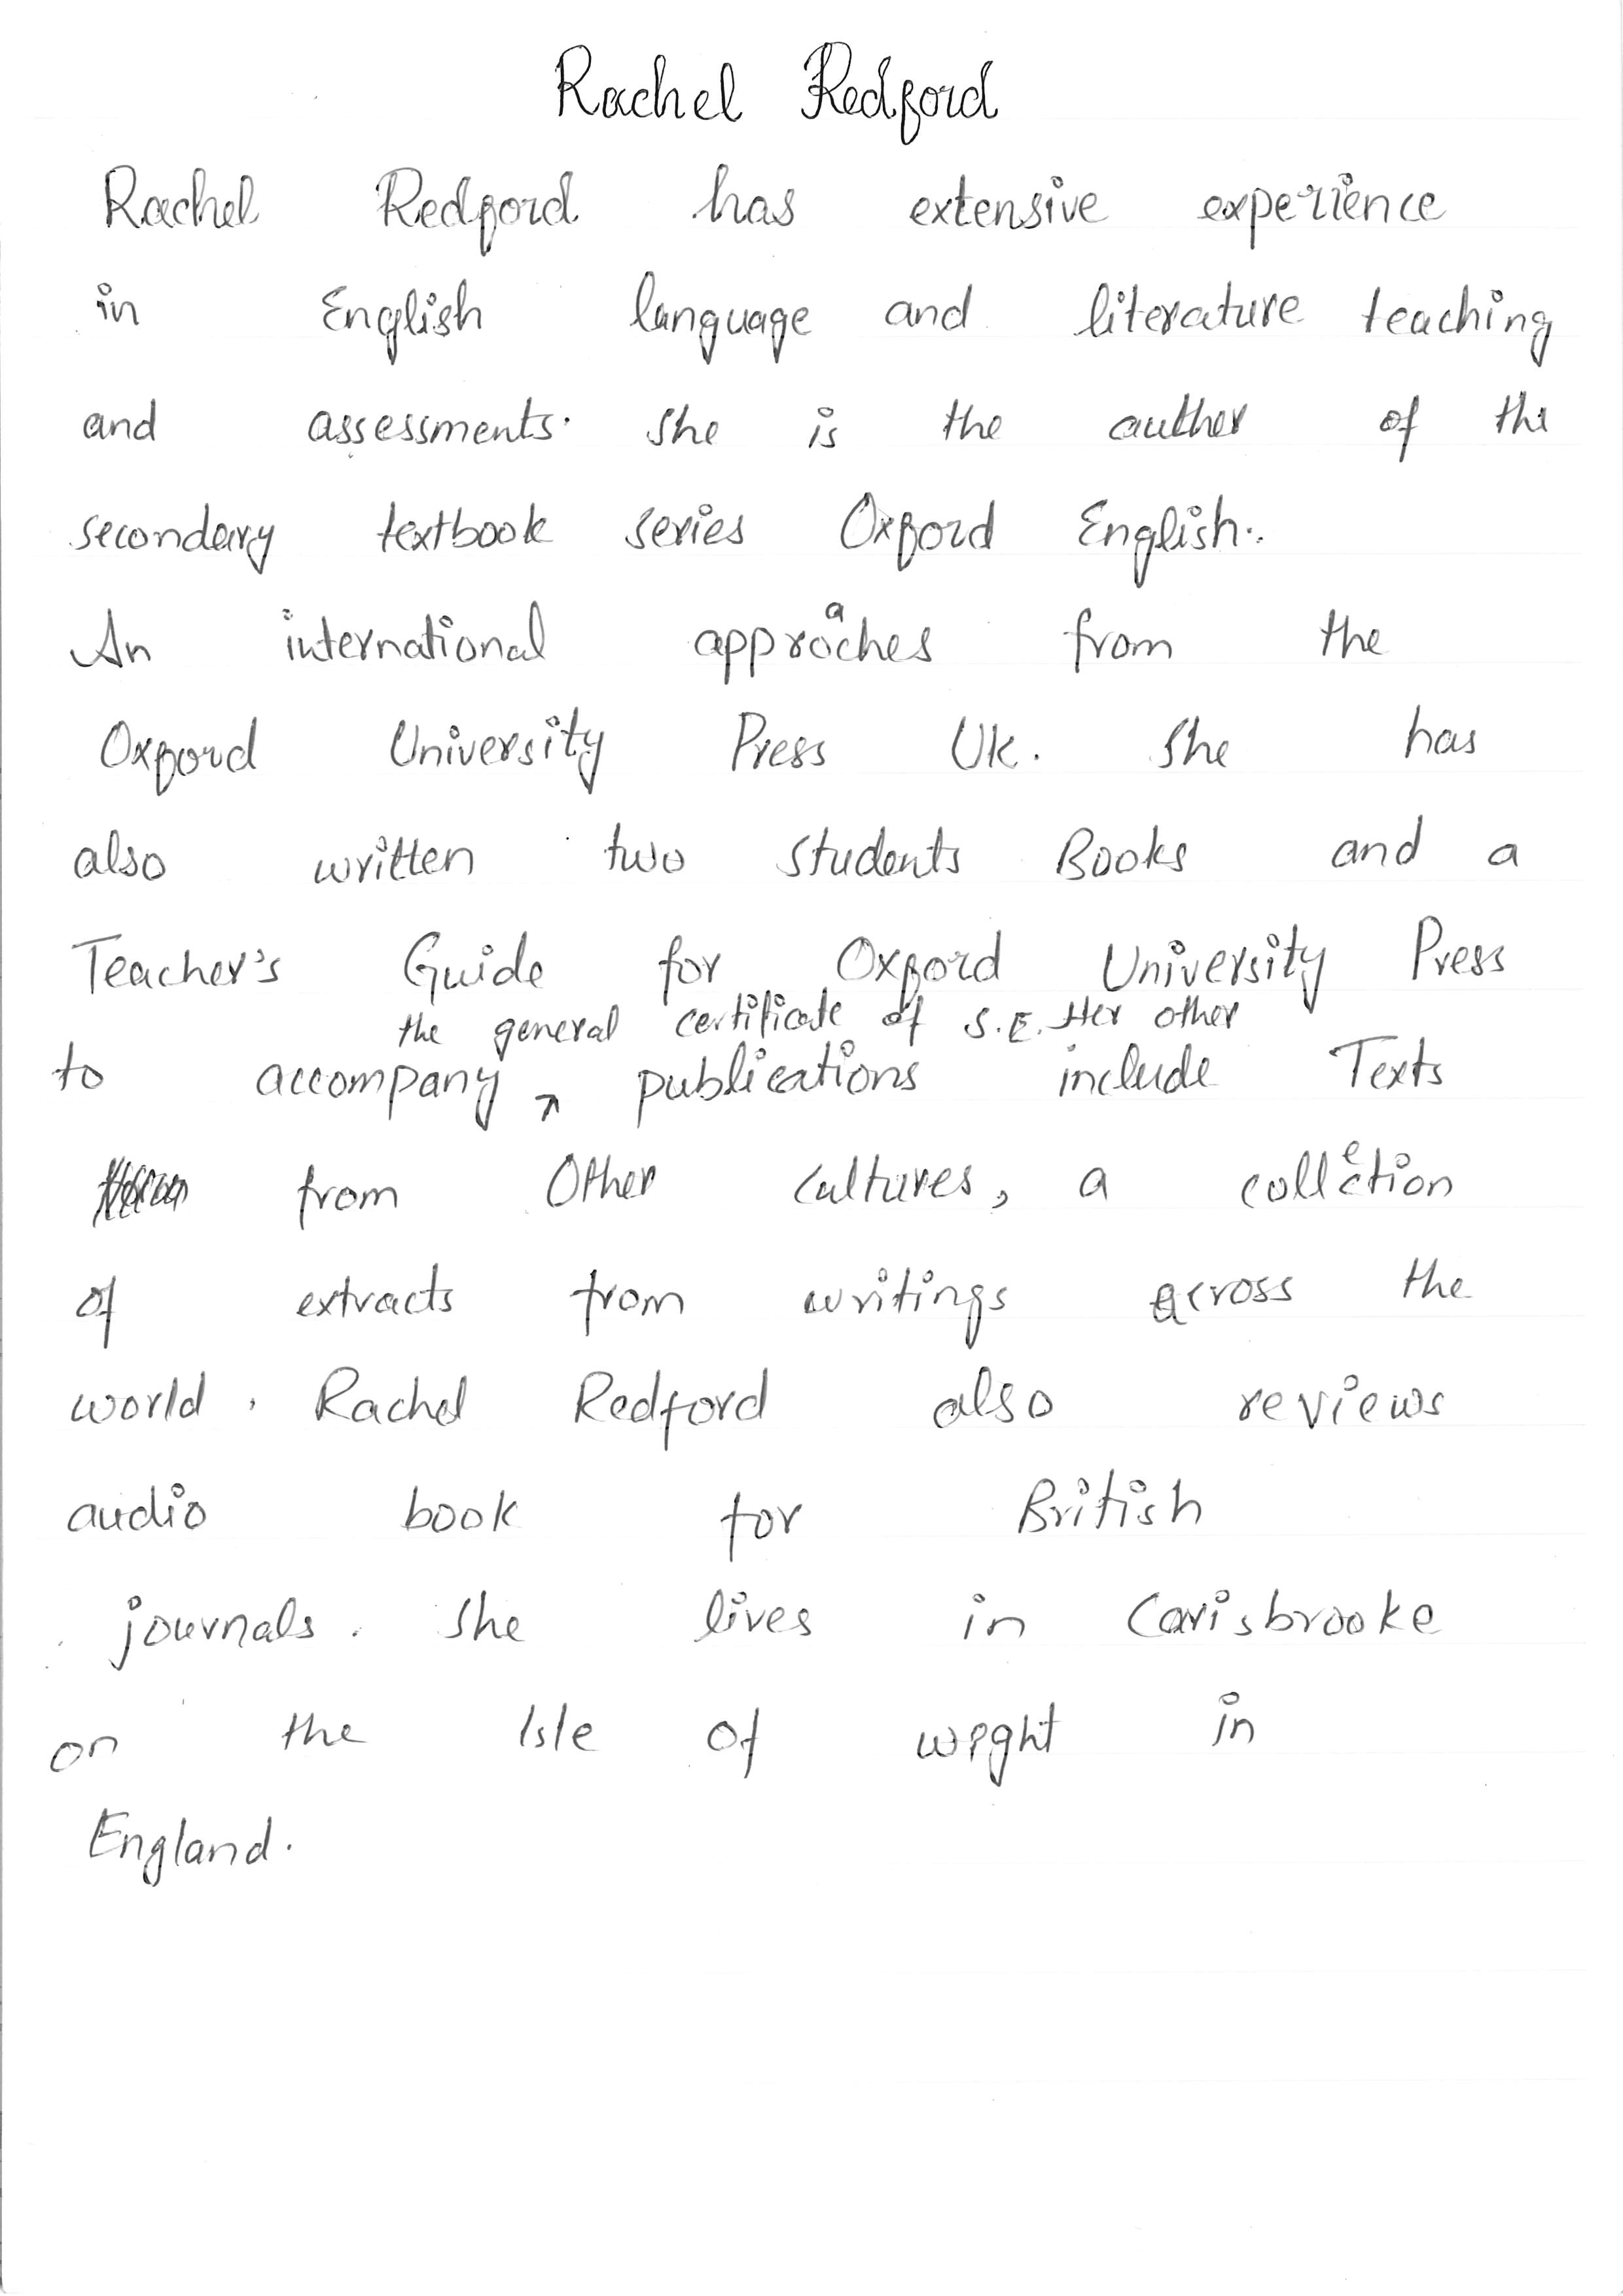 Rachel Redford
Rachel Redford has extensive experience
in English language and literature teaching
and assessments. She is the auther of the
secondary textbook series Oxford English.
An international approaches from the
Oxford University Press Uk. She has
also written two students Books and a
Teacher's Guide for Oxford University Press
the general certificate of S.E. Her other
to accompany publications include Texts
from Other cultures, a collection
of extracts from writings across the
world. Rachel Redford also reviews
audio book for British
journals. She lives in Carisbrooke
on the Isle of wight in
England.